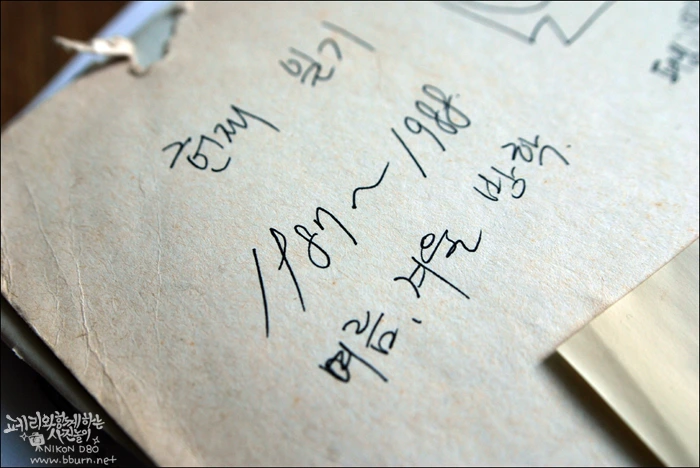 현재 일기
1987~1988.
여름, 겨울 방학.
페리와 함께하는
사진놀이
NIKON D80
www.bburn.net